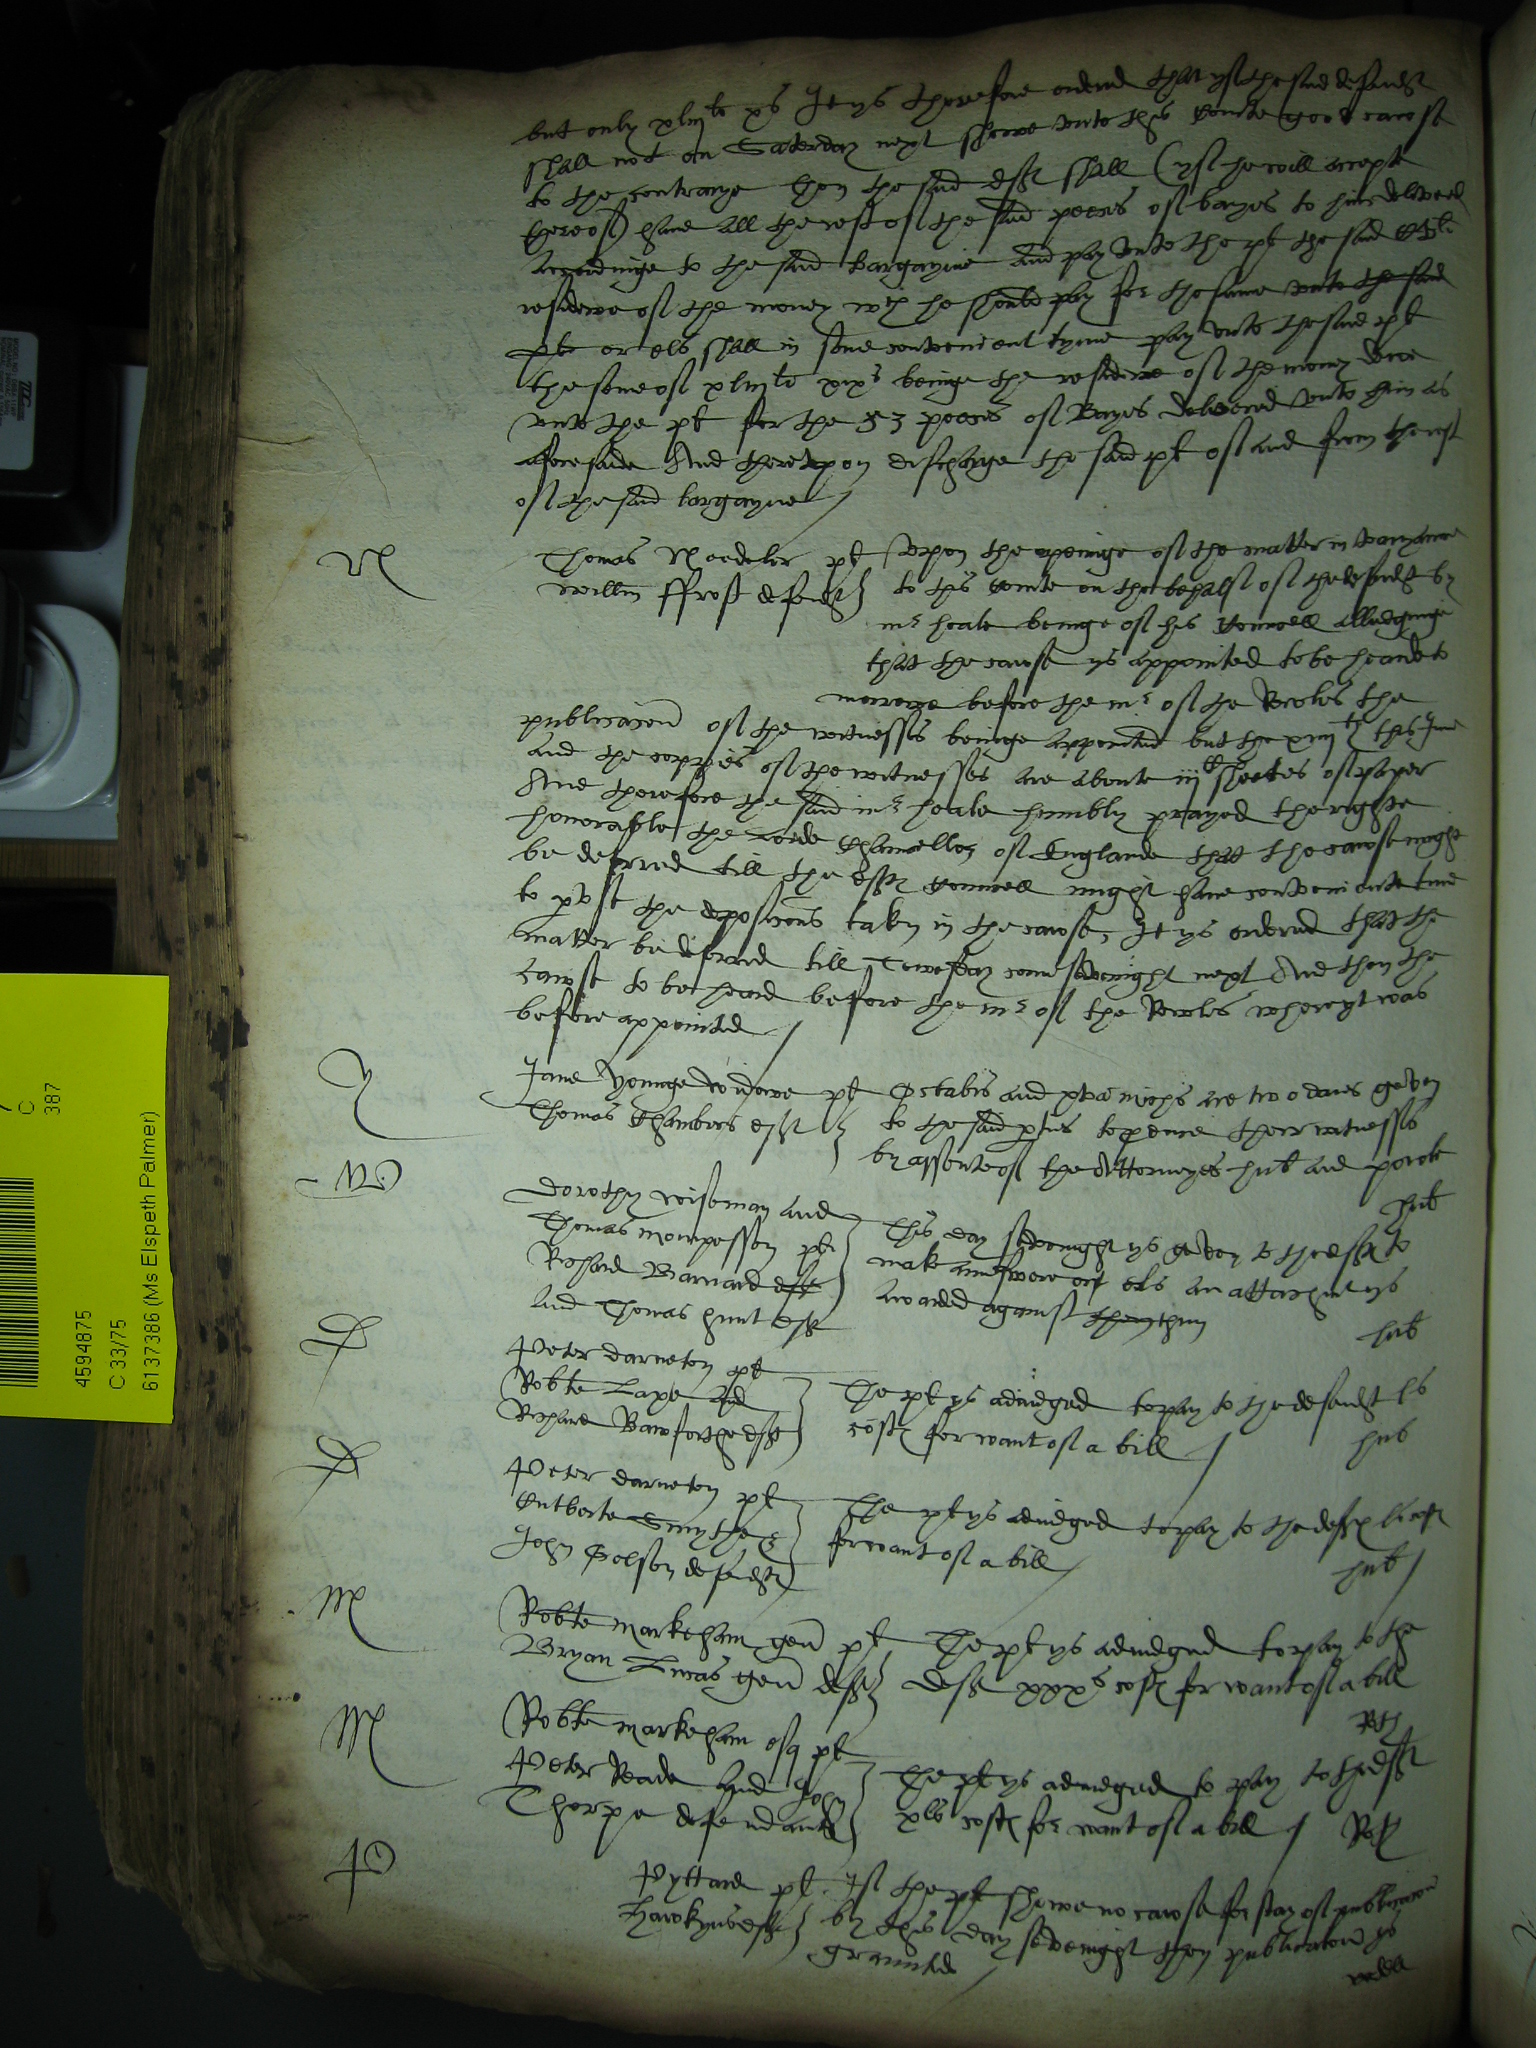 but only xlvj li xs It ys therefore ordered that yf the said defendt
shall not on Saterday next shewe unto this Courte good cawse
to the contrarye then the said deft shall (yf he will accepte
thereof) have all the rest of the said peeces of bayes to him delivered
accordinge to the said bargayne and pay unto the pt the said
residewe of the money wch he should pay for the same unto the said
plt or els shall in some convenient tyme pay unto the said pt
the some of xlvj li xixs beinge the residewe of the money dewe
unto the pt for the 53 peeces of Bayes delivered unto him as
aforesaide And thereupon discharge the said pt of and from the rest
of the said bargayne
N
Thomas Needeler pt
Willm ffrost defendt
Uppon the openinge of the matter in variance
to this Courte on the behalf of the defendt by
mr heale beinge of his Councell alledginge
that the cawse ys appointed to be hearde to
morrowe before the mr of the Rowles the
publicacion of the witnesses beinge appointed but the xiijth this June
and the coppies of the witnesses are aboute iij sheetes of paper
And therefore the said mr heale humbly prayed the righte
honorable the Lorde Chauncellor of Englande that the cawse might
be deferred till the deft Councell might have conveniente time
to p[er]use the deposicons taken in the cawse, It ys ordered that the
matter be deferred till Tewesday come sevenight next And then the
cawse to be heard before the mr of the Rowles where yt was
before appointed
Y
Jane Younge widowe pt
Thomas Chambers deft
Octabis and are two daies geven
to the said pties to p[ro]duce their witnesses
by assente of the Attorneyes hub and powle
W
hub
Dorothy wiseman and
Thomas mompesson pts
Richard Barnard deft
and Thomas hunt deft
This day sevenight ys geven to the deft to
make answere or els an attachmt ys
awarded against them them
D
hub
Peter darneton pt
Robte Laxe and
Richard Bawforthe deft
The pt ys adiudged to pay to the defendt ls
cost for want of a bill
D
hub
Peter darneton pt
Cutberte Smythe
John Colson defendt
The pt ys adiudged to pay to the deft ls cost
for want of a bill
hub
M
Robte markeham gen pt
Bryan Lucas gen deft
The pt ys adiudged to pay to the
deft xxxs cost for want of a bill
M
Robte markeham esq pt
Peter Reade and John
Thorpe defendants
The pt ys adiudged to pay to the deft
xls cost for want of a bill
P
Pyttard pt
Hawkyns deft
Yf the pt shewe no cawse for stay of publicacion
by this day sevenight then publicacion ys
graunted
4594875
C 33/75
6137386 (Ms Elspeth Palmer)
C
387